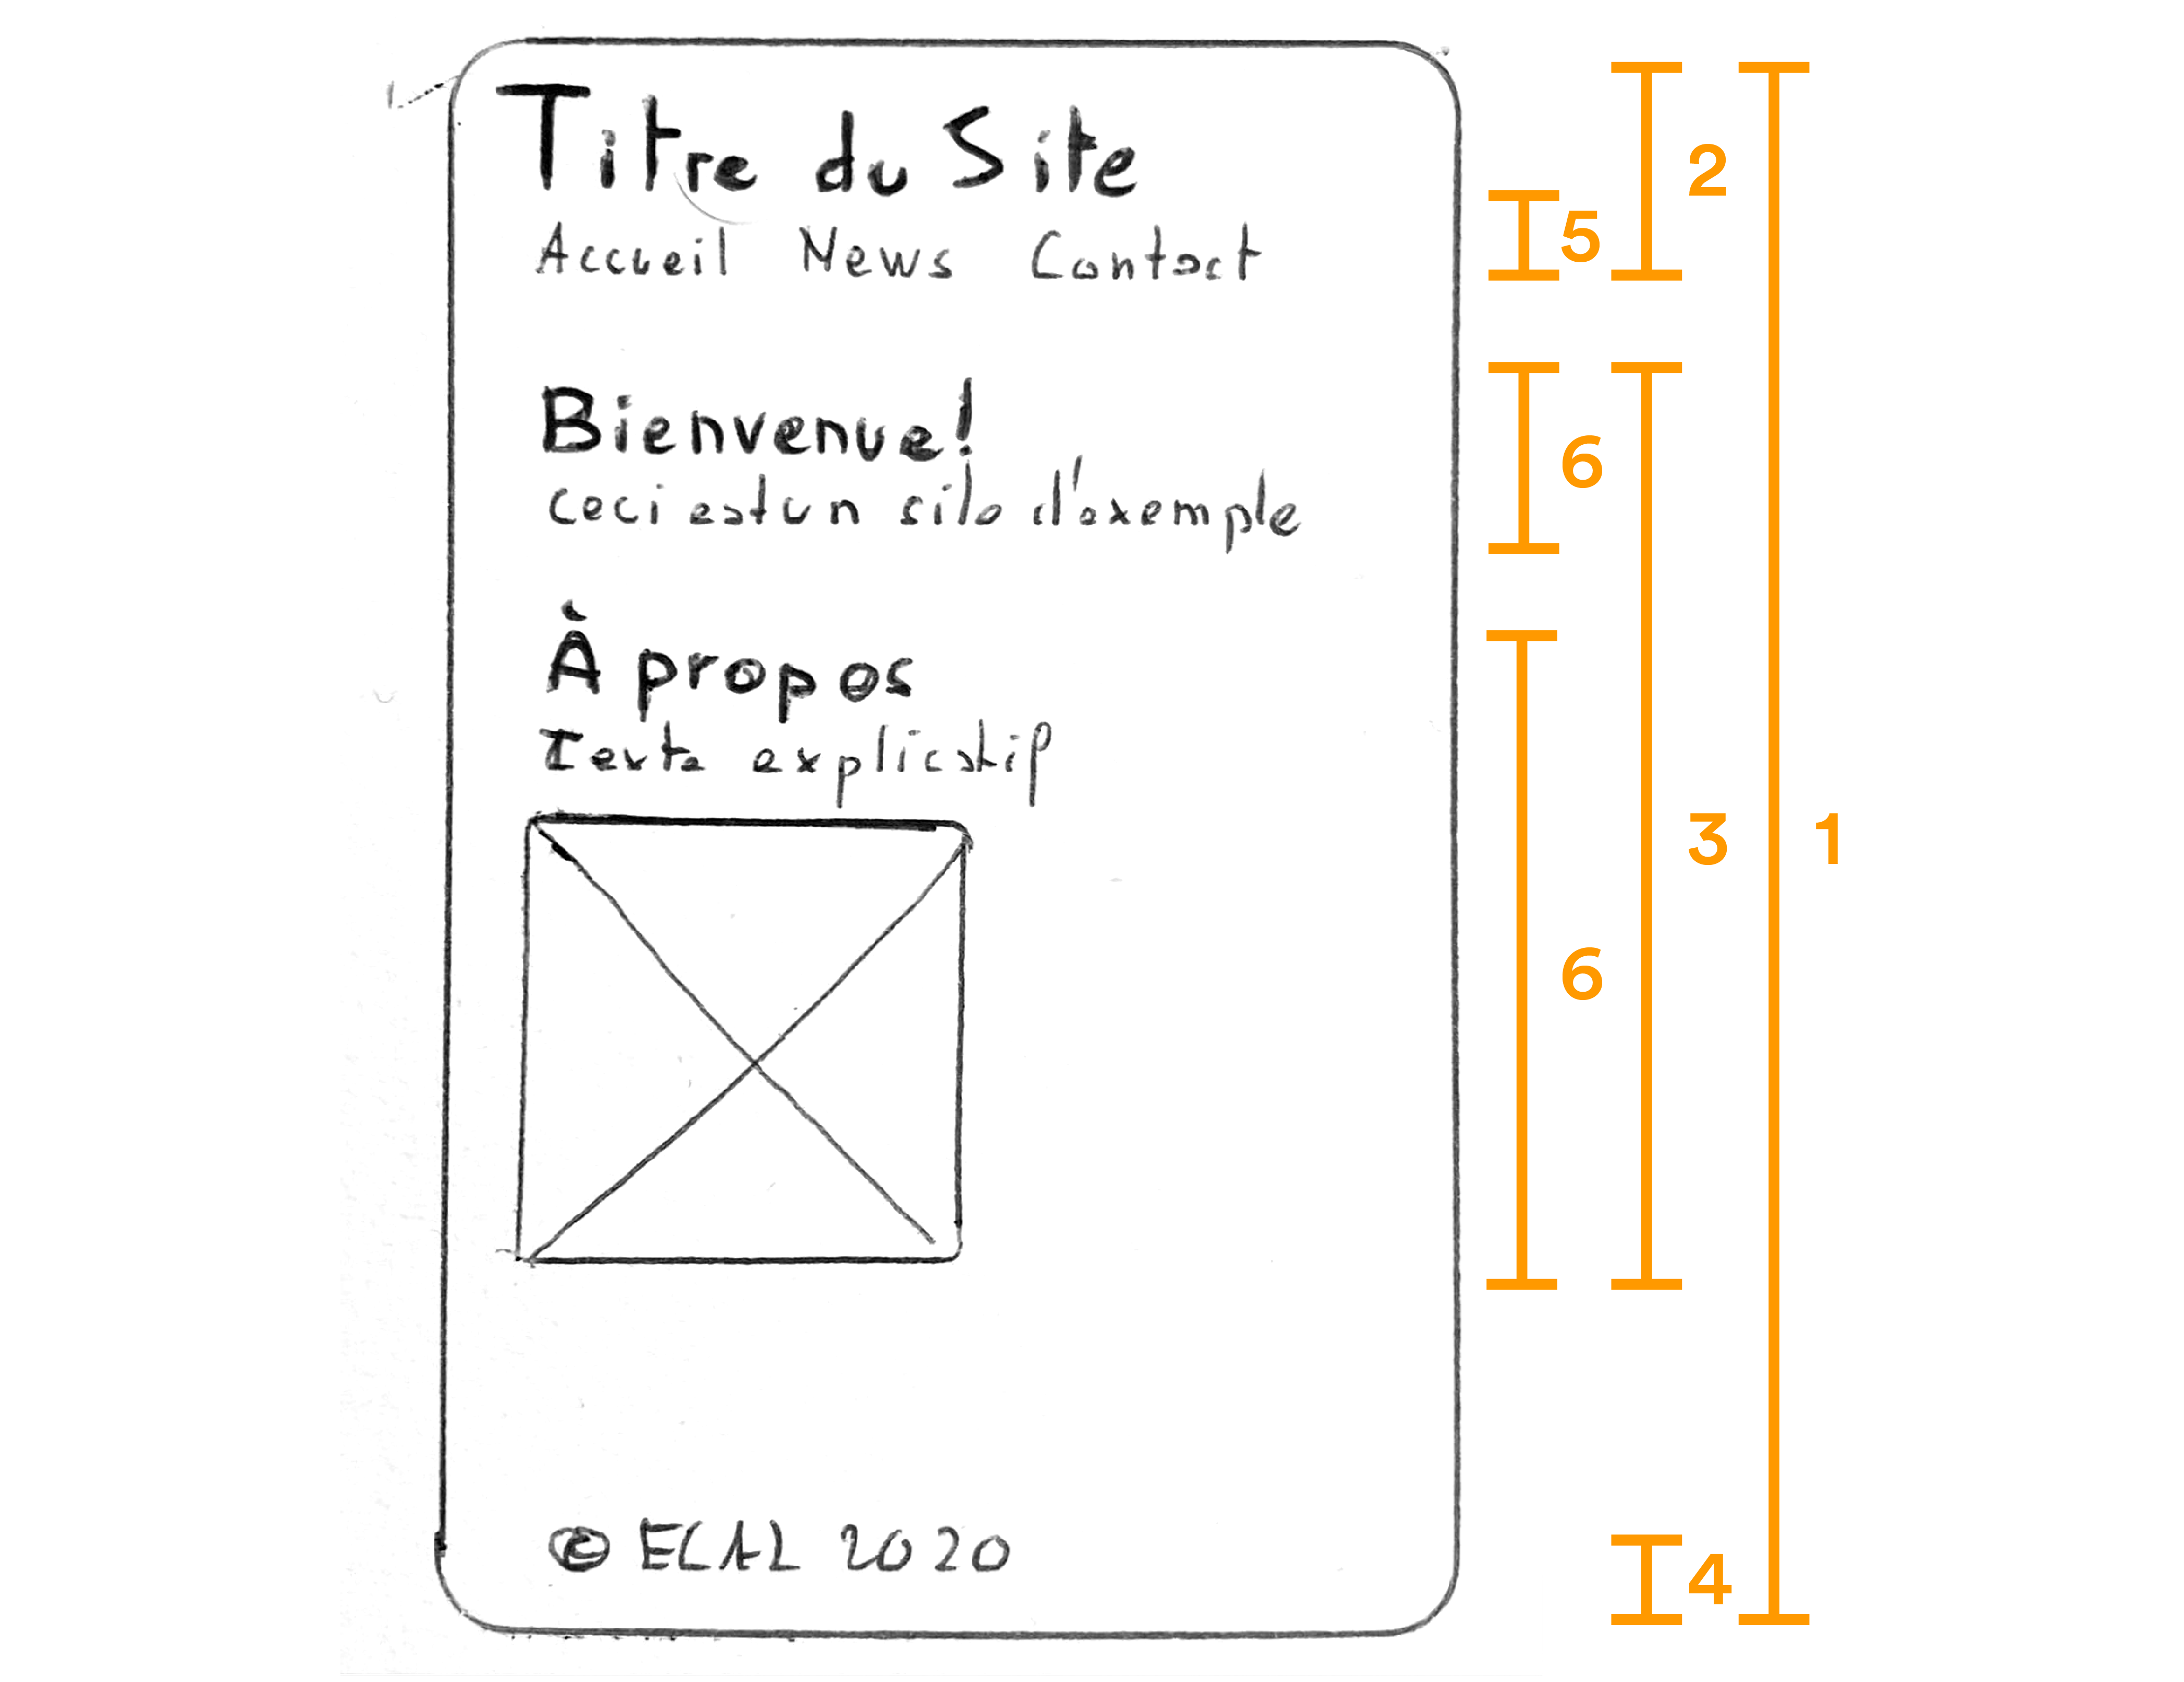 Titre du Site
Accueil News Contact
Bienvenue!
ceci est un site d'exemple
À propos
Texte explicatif
© ECAL 2020
2
5
6
3
1
6
4